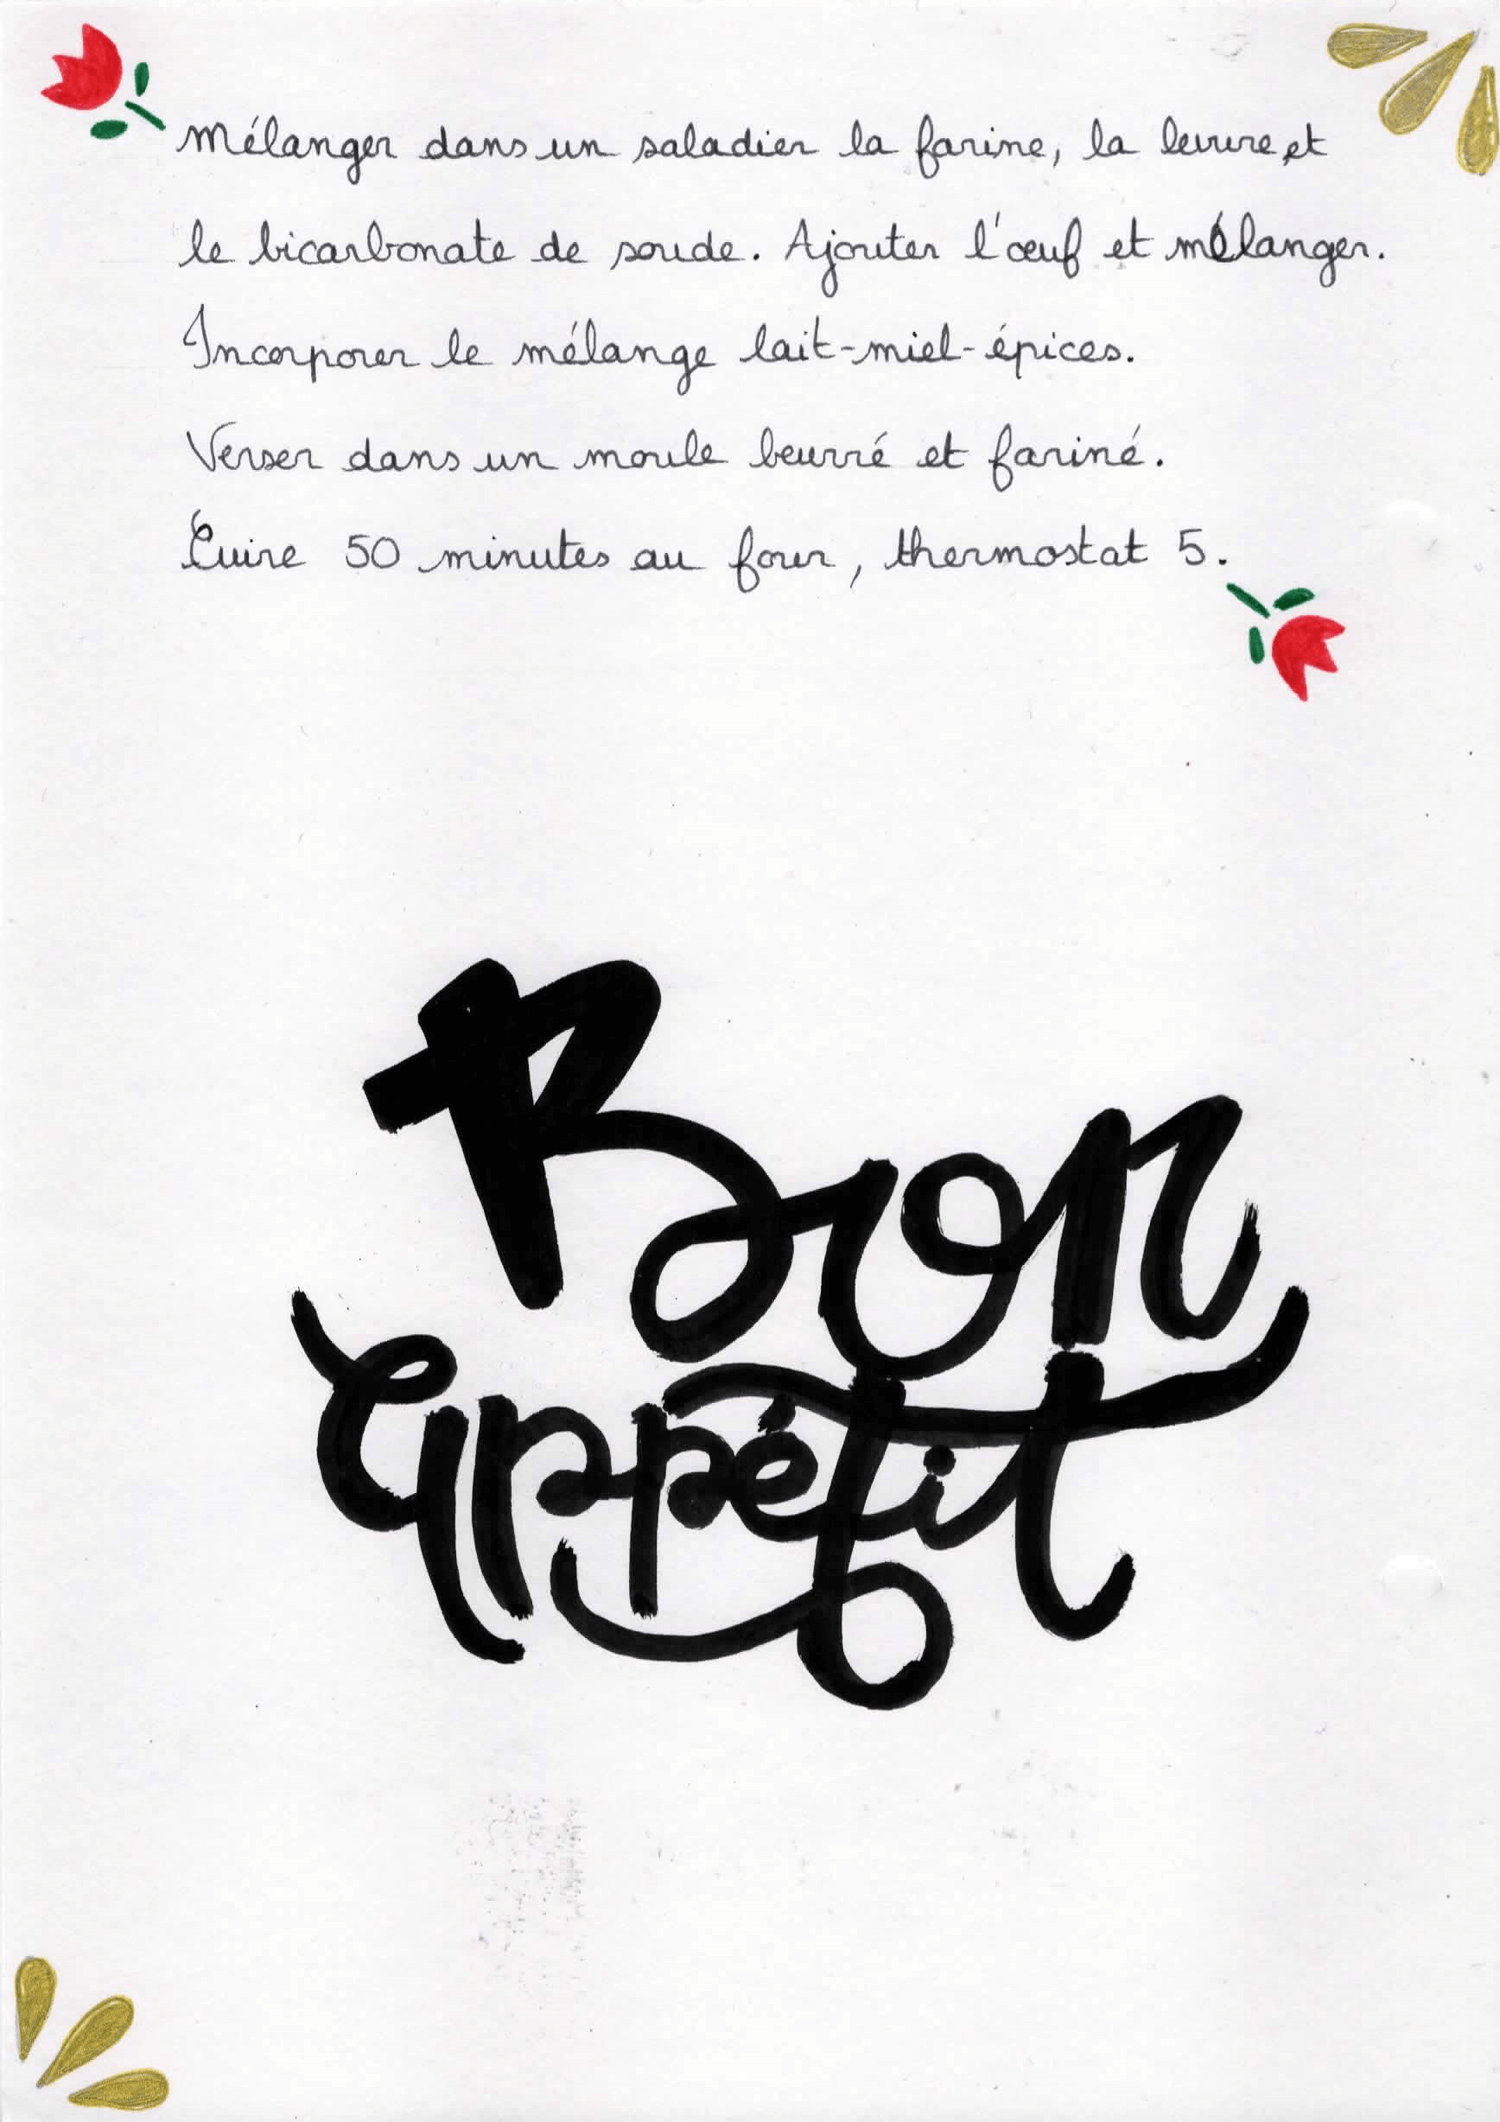 Mélanger dans un saladier la farine, la levure et
le bicarbonate de soude. Ajouter l'œuf et mélanger.
Incorporer le mélange lait-miel-épices.
Verser dans un moule beurré et fariné.
Cuire 50 minutes au four, thermostat 5.
Bon
appétit